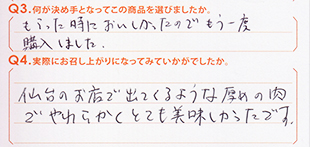 Q3.何が決め手となってこの商品を選びましたか。
もらった時においしかったのでもう一度
購入しました.
Q4.実際にお召し上がりになってみていかがでしたか。
仙台のお店で出てくるような厚めの肉
でやわらかくとても美味しかったです。